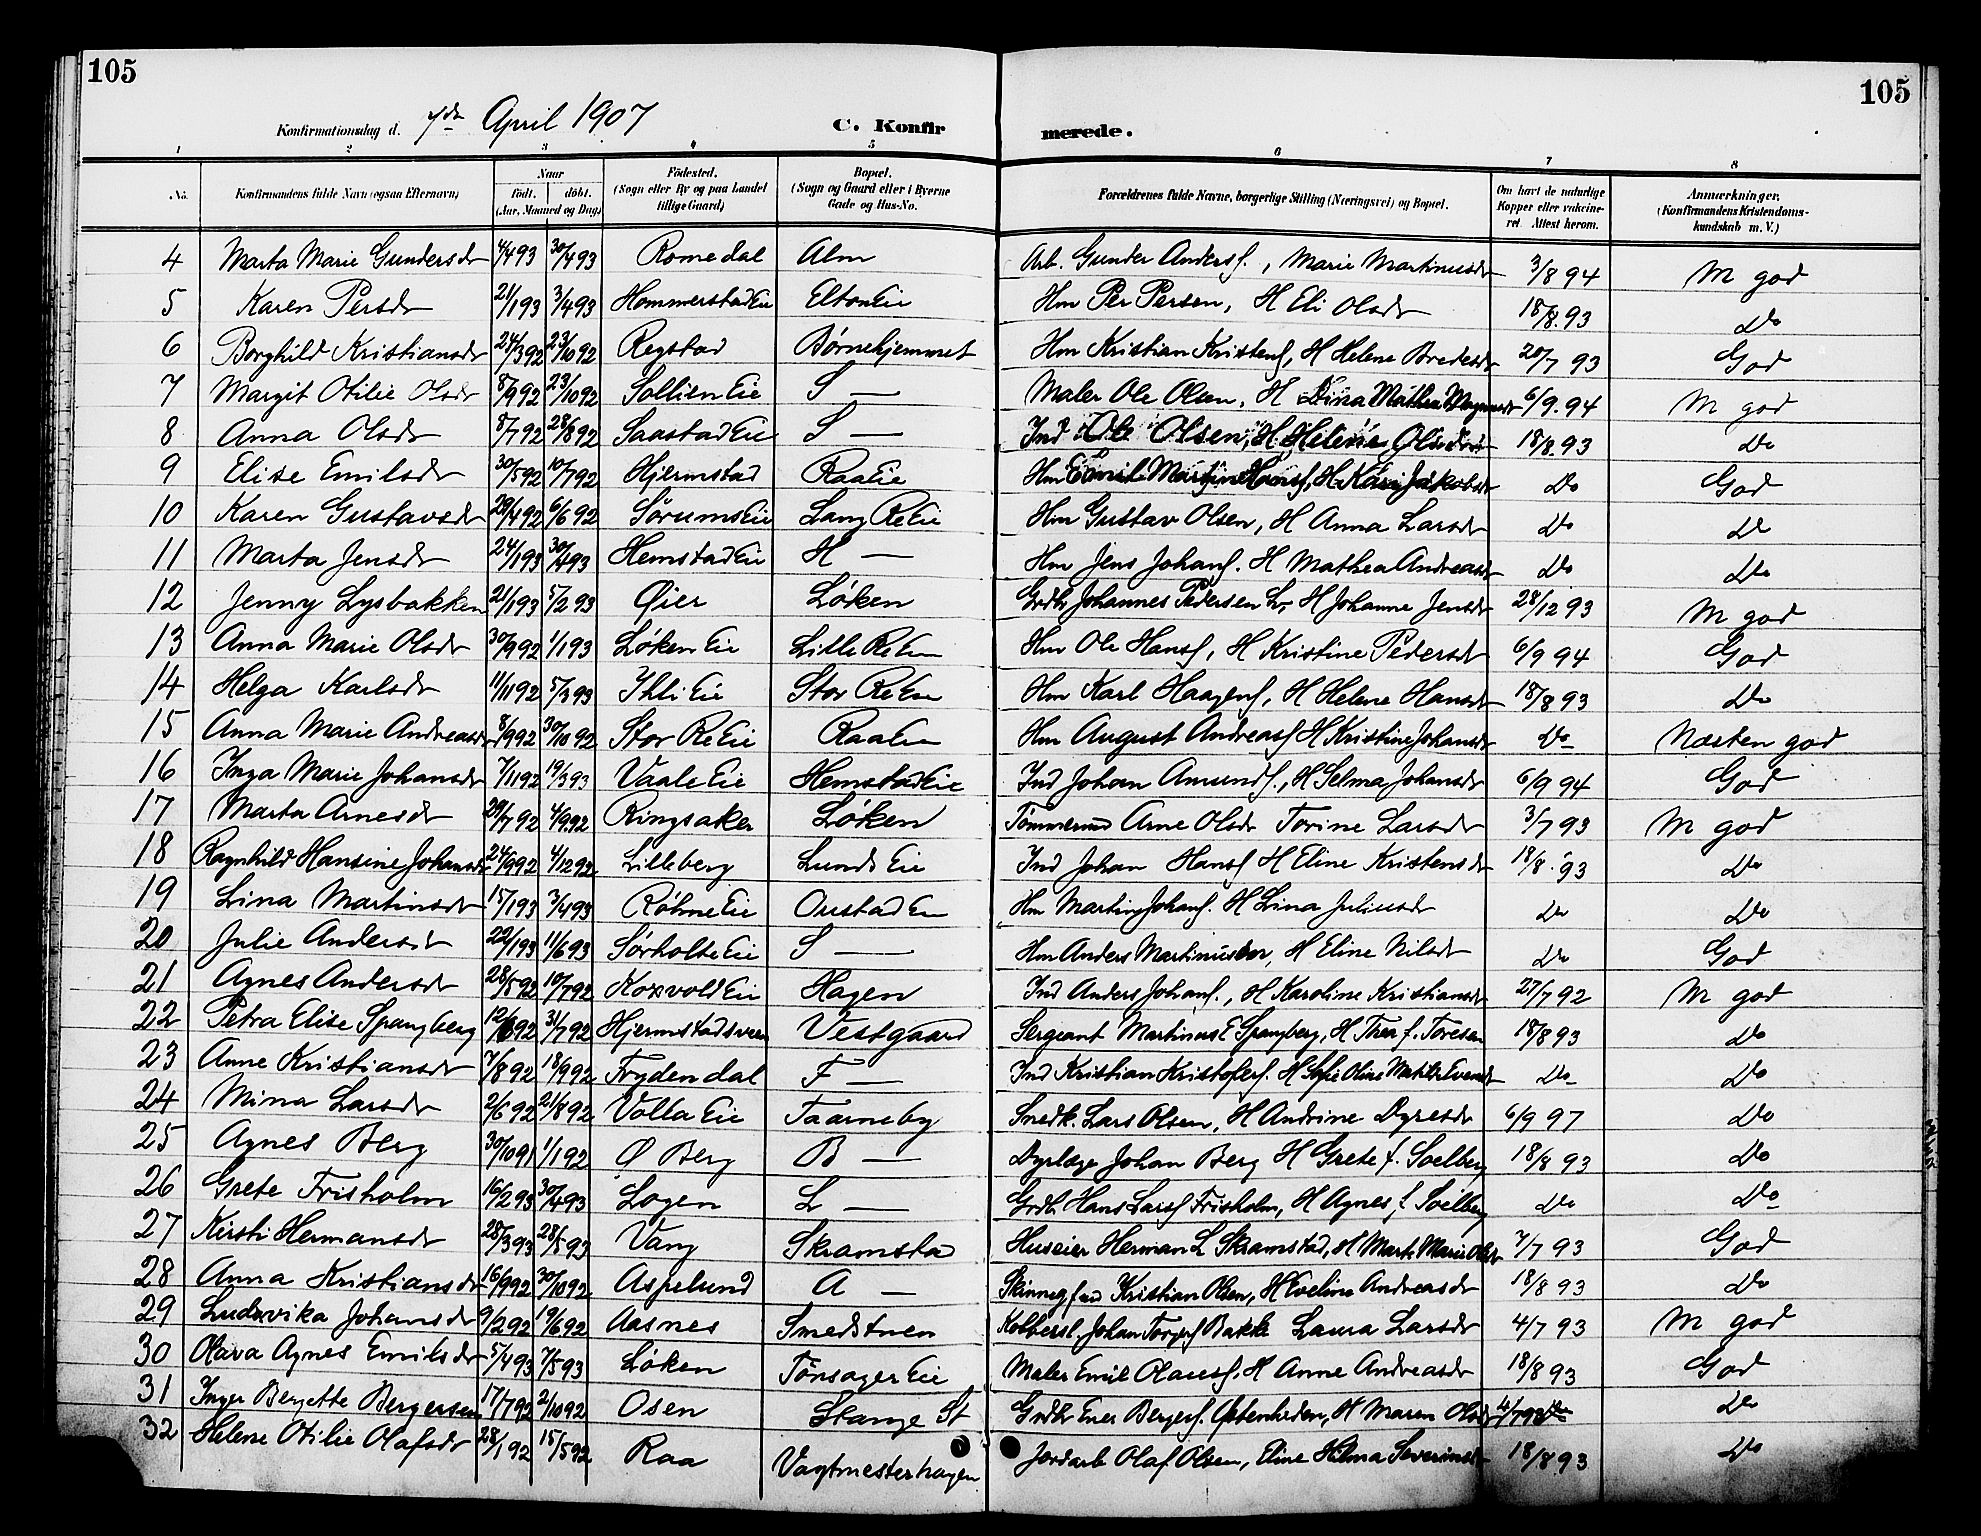 105
105
Konfirmationsdag d. 7de April 1907 C. Konfirmerede.
1 2 3 4 5 6 7 8
No. Konfirmandens fulde Navn (ogsaa Efternavn) Naar född. döbt. (Aar, Maaned og Dag) Födested. (Sogn eller By og paa Landet tillige Gaard) Bopæl. (Sogn og Gaard eller i Byerne Gade og Hus-No. Forældrenes fulde Navne, borgerlige Stilling (Næringsvei) og Bopæl. Om havt de naturlige Kopper eller vakcineret. Attest herom. Anmærkninger. (Konfirmandens Kristendomskundskab m. V.)
4 Marta Marie Gundersdr 4/4 93 30/4 93 Romedal Alm Arb. Gunder Andersf., Marie Martinusdr 3/8 94 M god
5 Karen Persdr 21/1 93 3/4 93 Hommerstad Eie Elton Eie Hm Per Persen, H Eli Olsdr 18/8.93 Do
6 Borghild Kristiansdr 24/3 92 23/10 92 Regstad Børnehjemmet Hm Kristian Kristensf, H Helene Bredesdr 20/7 93 God
7 Margit Otilie Olsdr 8/9 92 23/10 92 Sollien Eie S — Maler Ole Olsen, H Dina Mathea 6/9.94 M god
8 Anna Olsdr 8/7 92 28/8 92 Saastad Eie S — Ind Ole Olsen, H. Helene Olsdr 18/8.93 Do
9 Elise Emilsdr 30/5 92 10/7 92 Hjermstad Raa Eie Hm Emil Martin Hansf, H. Kari Jakobsdr Do God
10 Karen Gustavsdr 29/4 92 6/6 92 Sørums Eie Lang Re Eie Hm Gustav Olsen, H Anna Larsdr Do Do
11 Marta Jensdr 24/1 93 30/4 93 Hemstad Eie H — Hm Jens Johansf. H Mathea Andreasdr Do Do
12 Jenny Lysbakken 21/1 93 5/2 93 Øier Løken Grdbr Johannes Pedersen L, H Johanne Jensdr 28/12 93 M god
13 Anna Marie Olsdr 30/9 92 1/1 93 Løken Eie Lille Re Eie Hm Ole Hansf, H Kristine Pedersdr 6/9 94 God
14 Helga Karlsdr 11/11 92 5/3 93 Ihli Eie Stor Re Eie Hm Karl Haagensf, H Helene Hansdr 18/8 93 Do
15 Anna Marie Andreasdr 8/9 92 30/10 92 Stor Re Eie Raa Eie Hm August Andreasf H Kristine Johansdr Do Næsten god
16 Inga Marie Johansdr 7/11 92 19/3 93 Vaale Eie Hemstad Eie Ind Johan Amundsf., H. Selma Johansdr 6/9 94 God
17 Marta Arnesdr 29/7 92 4/9 92 Ringsaker Løken Tømmermd Arne Olsdr Torine Larsdr 3/7 93 M god
18 Ragnhild Hansine Johansdr 24/9 92 4/12 92 Lilleberg Lunds Eie Ind Johan Hansf H Eline Kristensdr 18/8.93 Do
19 Lina Martinsdr 15/1 93 3/4 93 Røhne Eie Oustad Eie Hm Martin Johansf. H Lina Juliusdr Do Do
20 Julie Andersdr 22/1 93 11/6 93 Sørholte Eie S — Hm Anders Martinussen, H Eline Nilsdr Do God
21 Agnes Andersdr 28/5 92 10/7 92 Korsvold Eie Hagen Ind Anders Johansf., H Karoline Kristiansdr 27/7 92 M god
22 Petra Elise Spangberg 12/6 92 31/7 92 Hjermstadsveen Vestgaard Sergeant Martinus E Spangberg, H Thea f. Toresen 18/8 93 Do
23 Anne Kristiansdr 7/8 92 18/9 92 Frydendal F — Ind Kristian Kristofersf. H Sofie Oline Evensdr Do Do
24 Mina Larsdr 2/6 92 21/8 92 Volla Eie Taarneby Snedk. Lars Olsen, H Andrine Dyresdr 6/9 97 Do
25 Agnes Berg 30/10 91 1/1 92 Ø Berg B — Dyrlæge Johan Berg H Grete f. Soelberg 18/8 93 Do
26 Grete Frisholm 16/2 93 30/4 93 Logen L — Grdbr Hans Larsf Frisholm, H Agnes f. Soelberg Do Do
27 Kirsti Hermansdr 28/3 93 28/5 93 Vang Skramstad Huseier Herman L Skramstad, H Marte Marie Olsdr 7/7 93 God
28 Anna Kristiansdr 16/9 92 30/10 92 Aspelund A — Kristian Olsen, H Eveline Andreasdr 18/8 93 Do
29 Ludovika Johansdr 9/2 92 19/6 92 Aasnes Smedstuen Kobbersl. Johan Bakke Laura Larsdr 4/7 93 M god
30 Olava Agnes Emilsdr 5/4 93 7/5 93 Løken Tønsager Eie Maler Emil Olavesf. H Anne Andreasdr 18/8 93 God
31 Inger Bergette Bergersen 17/7 92 2/10 92 Osen Stange St Grdbr Ener Bergersf. Østenheden, H Maren Olsdr 4/7 93 Do
32 Helene Otilie Olafsdr 28/1 92 15/5 92 Raa Vagtmesterhagen Jordarb Olaf Olsen, Eline Hilma Severinsdr 18/8 93 Do